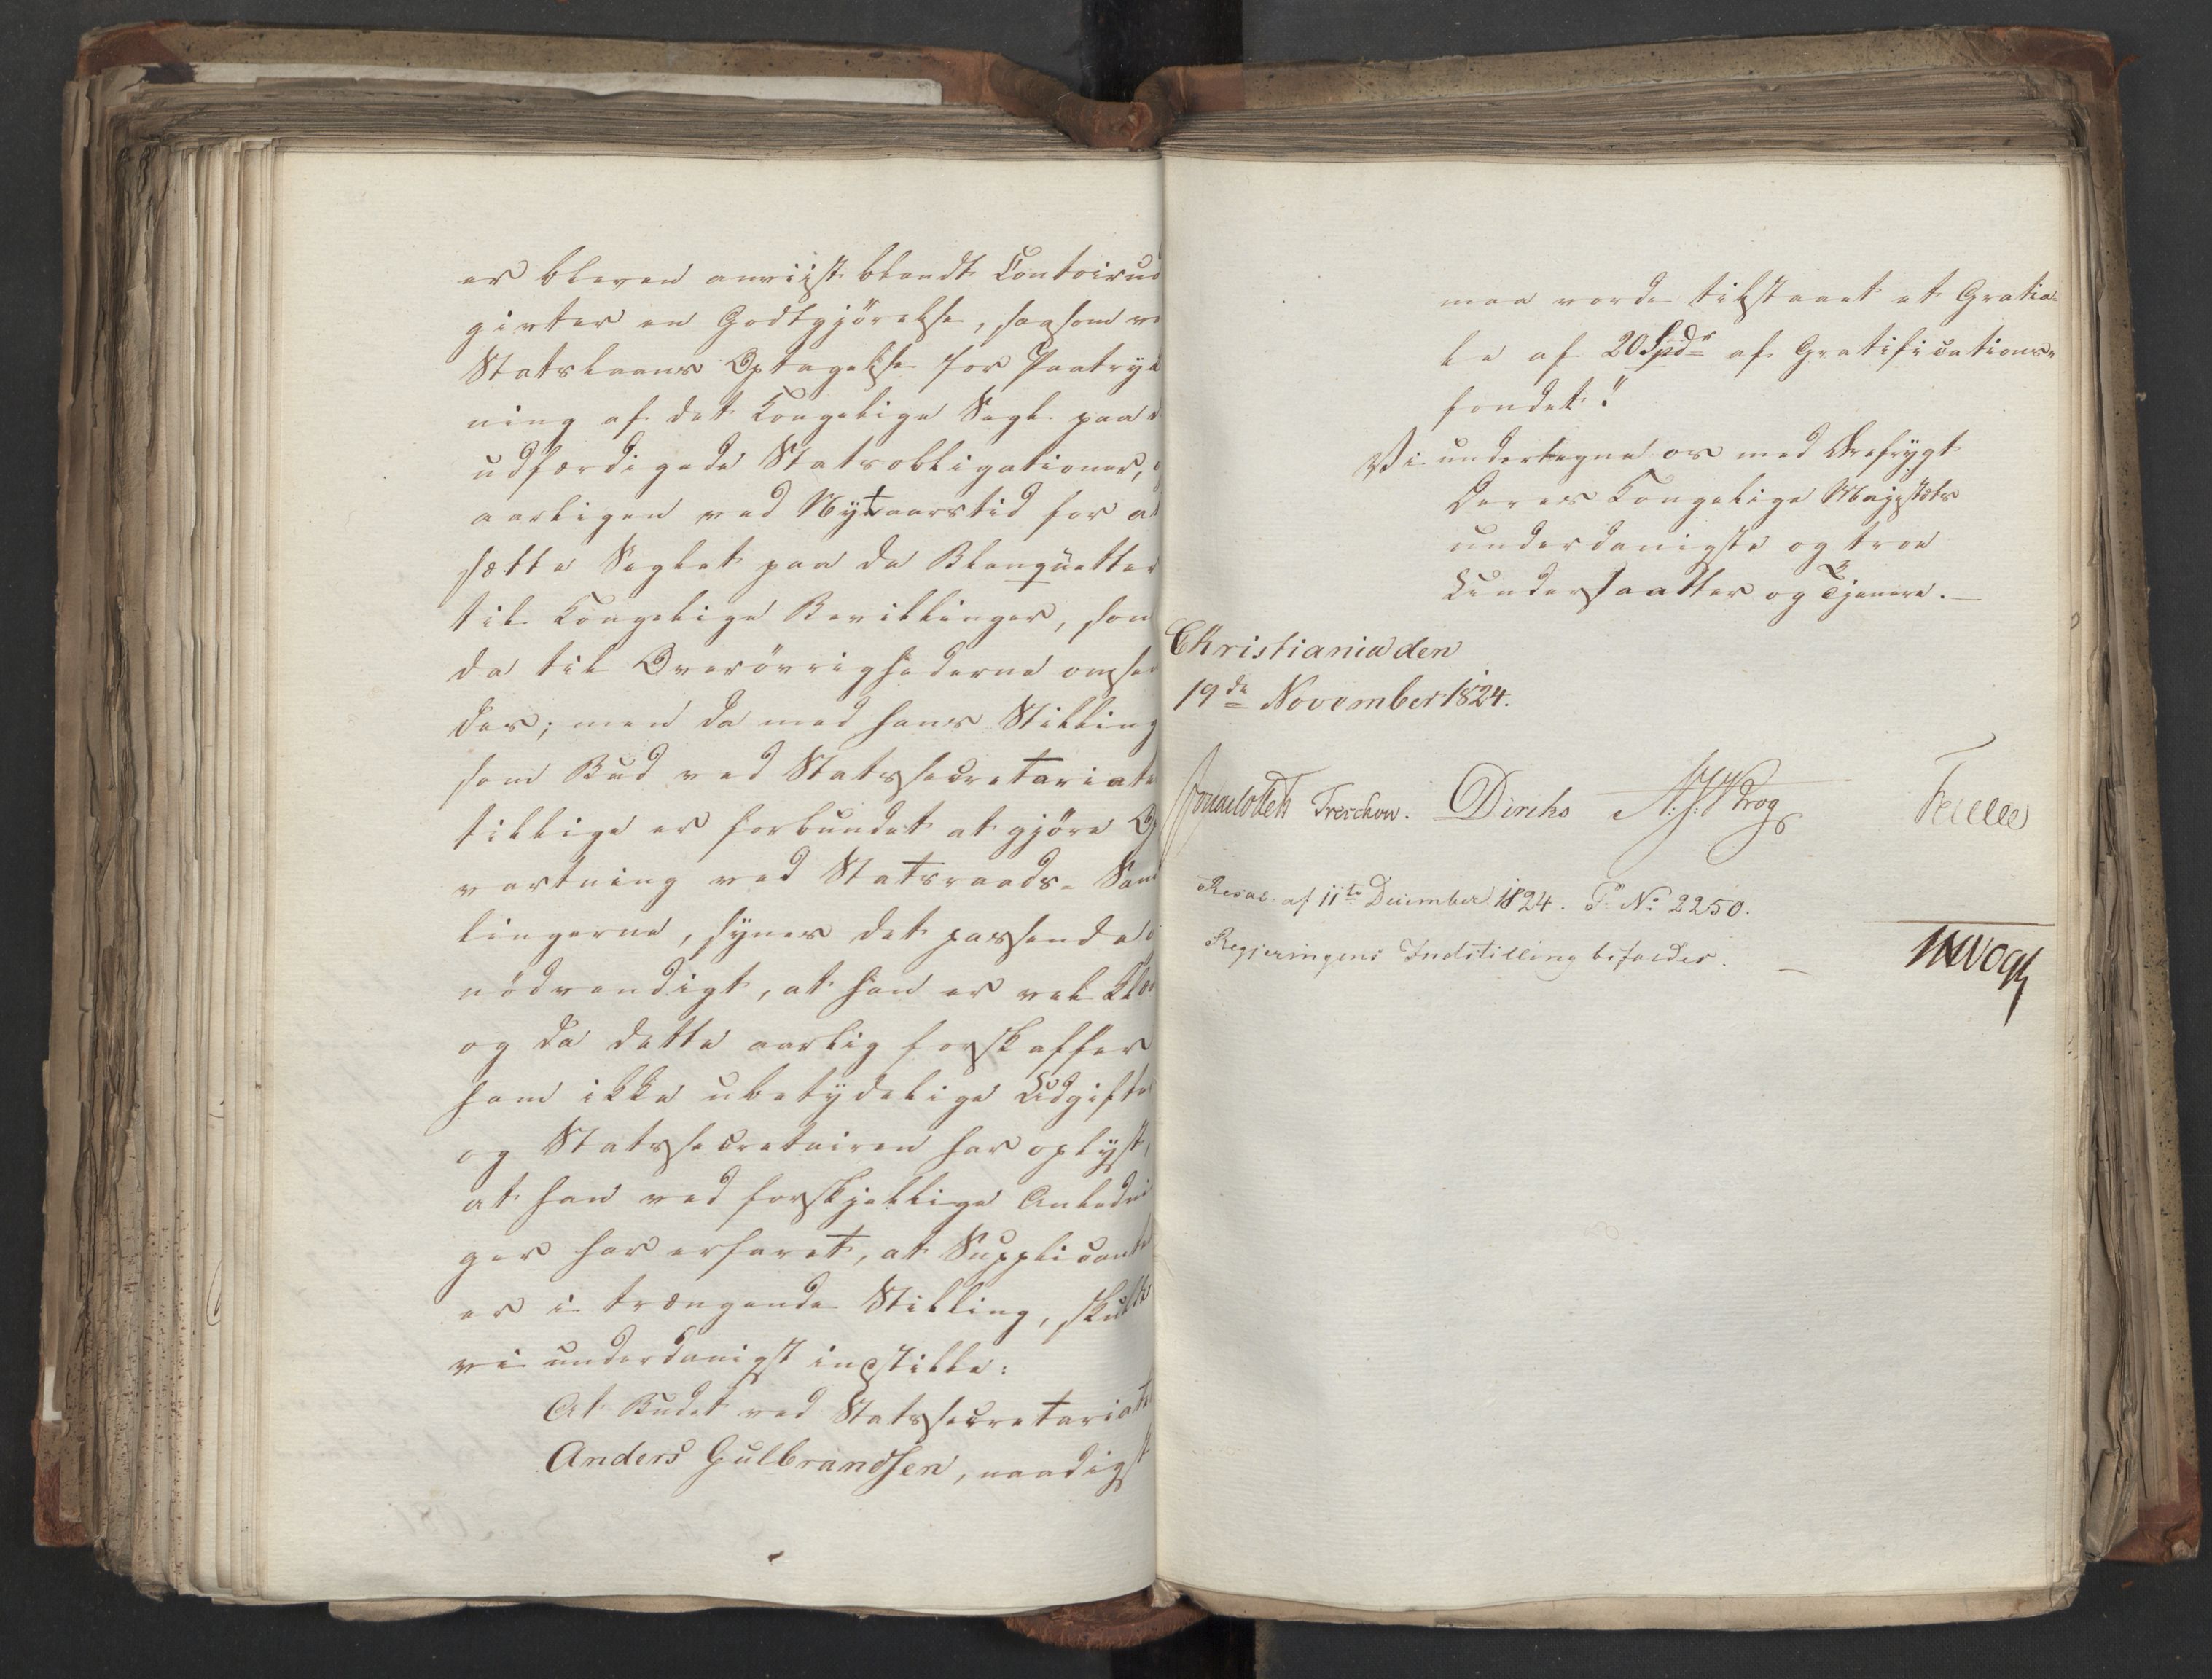 er bleven anviist blandt Contoirud
givter en Godtgjörelse, saasom ve
Statslaans Optagelse for Paatryk
ning af det Kongelige Segl paa d
udfærdigede Statsobligationer, o
aarligen ved Nytaarstid for at
sætte Seglet paa de Blanqüetter
til Kongelige Bevillinger, som
da til Overövrighederne omsen
des; men da med hans Stilling
som Bud ved Statssecretariate
tillige er forbundet at gjöre Op
vartning ved Statsraads-Sam
lingerne, synes det passende o
nödvendigt, at han er vel klæ
og da dette aarlig forskaffer
ham ikke ubetydelige Udgifter
og Statssecretairen har oplyst,
at han ved forskjellige Anledni
ger har erfaret, at Supplicante
er i trængende Stilling, skulle
vi underdanigst indstille:
At Budet ved Statssecretariate
Anders Gulbrandsen, naadigst
maa vorde tilstaaet et Gratia-
le af 20 Spdr af Gratifications-
fondet."
Vi undertegne os med Ærefrygt
Deres Kongelige Majestæts
underdanigste og troe
Undersaatter og Tjenere.—
Christiania den
19de November 1824.
Sommelet Treschow. Diricks Krog Fasting
Resol. af 11te December 1824. No 2250.
Regjeringens Indstilling bifaldes. —
Vogt